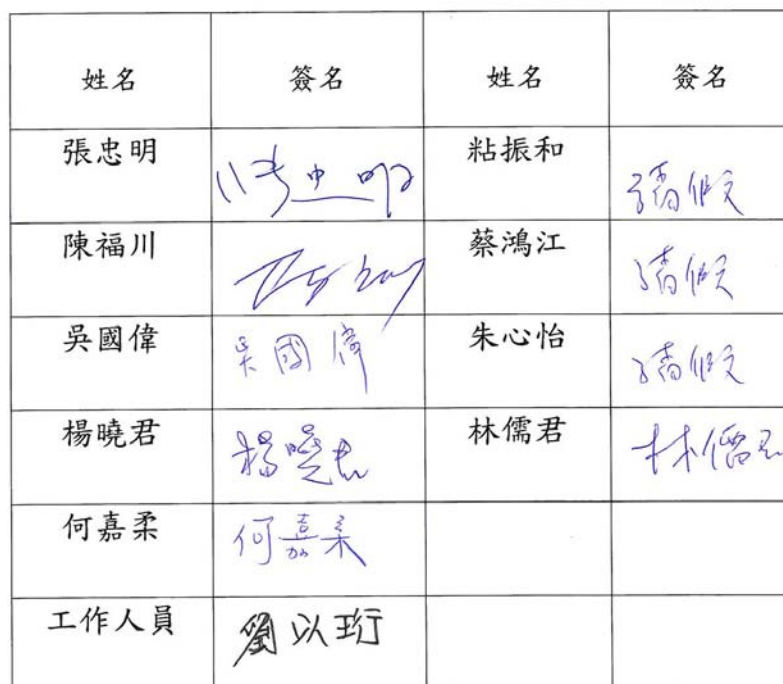 姓名 簽名 姓名 簽名
張忠明 張忠明 粘振和 請假
陳福川 蔡鴻江 請假
吳國偉 吳國偉 朱心怡 請假
楊曉君 楊曉君 林儒君 林儒君
何嘉柔 何嘉柔
工作人員 劉以珩